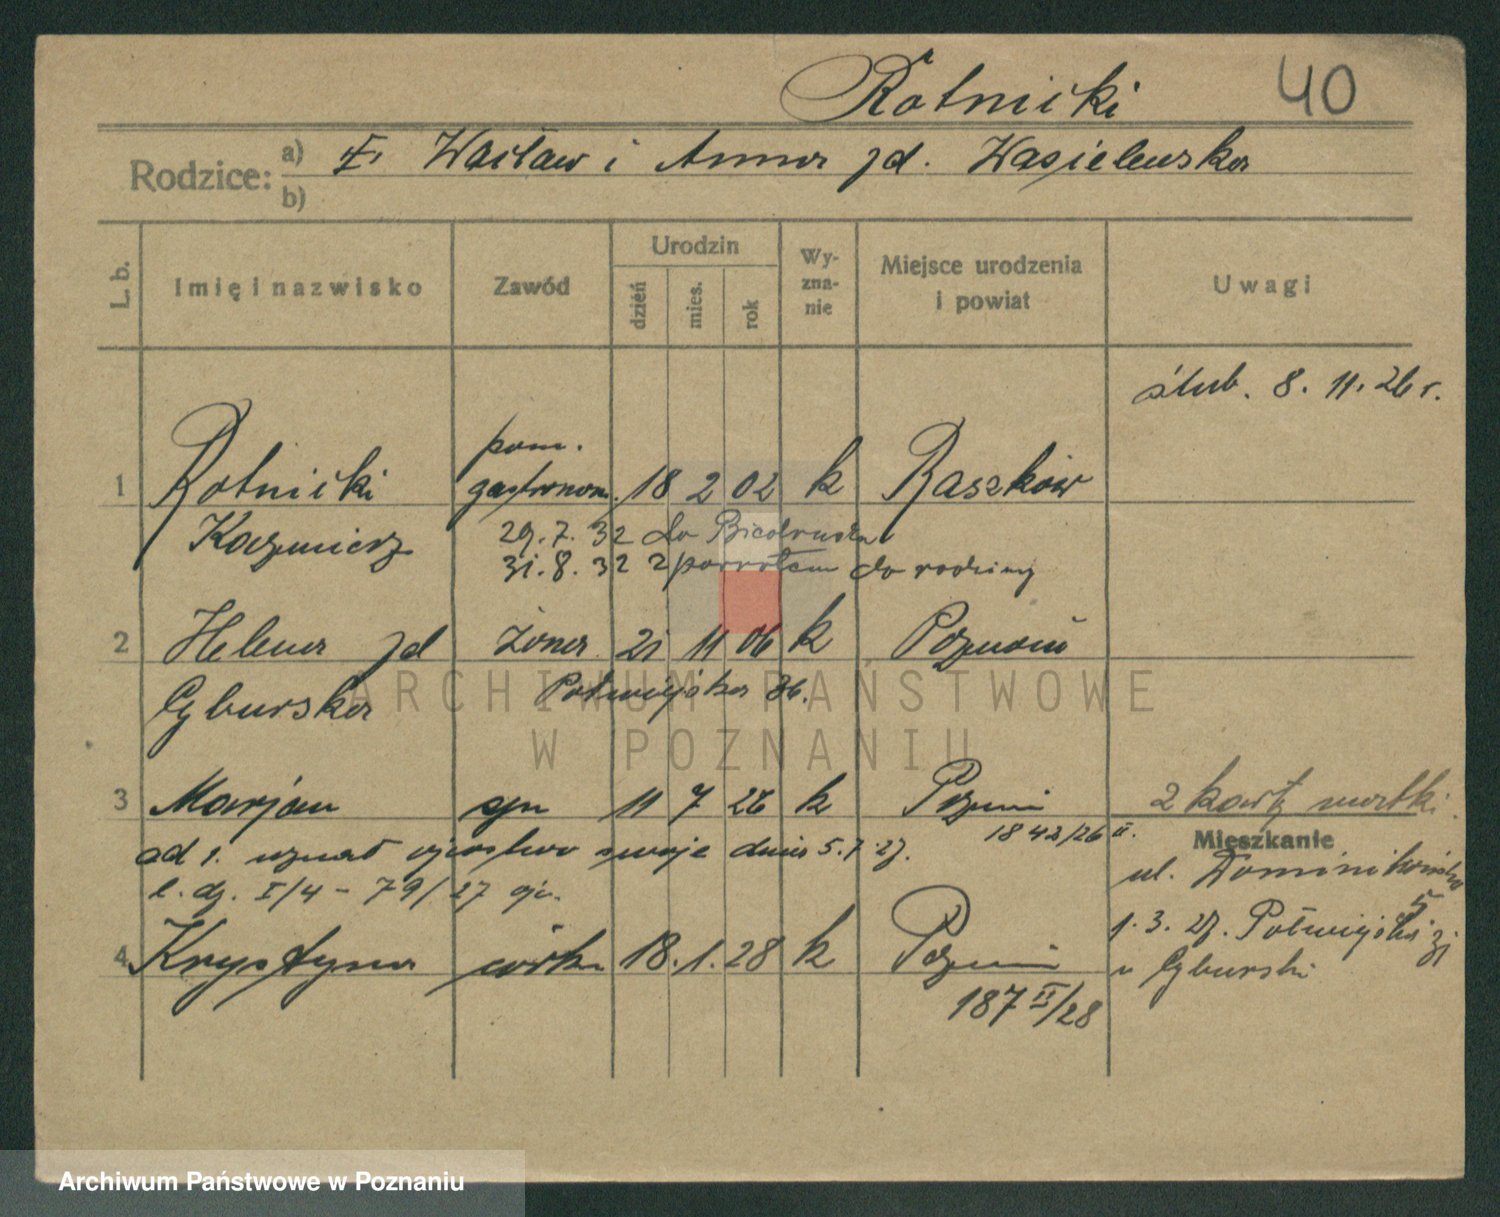 Rotnicki 40
Rodzice: a) Wacław i Anna zd. Wasielewska
b)
L. b. Imię i nazwisko Zawód Urodzin dzień mies. rok Wyznanie Miejsce urodzenia i powiat Uwagi
ślub. 8. 11. 26 r.
pom.
1 Rotnicki gastronom. 18 2 02 k Raszków
Kazimierz 29. 7. 32 do Biedruska
31. 8. 32 z powrotem do rodziny
2 Helena zd żona 21 11 06 k Poznań
Cyburska Półwiejska 36.
ARCHIWUM PAŃSTWOWE
W POZNANIU
3 Marjan syn 11 7 26 k Poznań 2 karty matki.
1842/26 II.
Mieszkanie
ad 1. uznał ojcostwo swoje dnia 5.7.27.
ul. Dominikańska 5
l. dz. I/4 - 79/27
1. 3. 27. Półwiejska 31
4 Krystyna córka 18. 1. 28 k Poznań u Cyburski
187 II/28
Archiwum Państwowe w Poznaniu